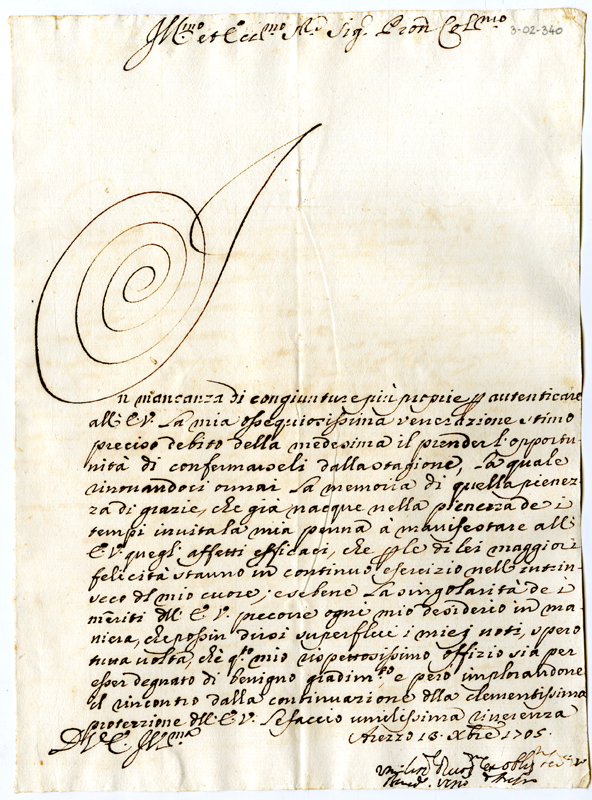 Ill.mo et Ecc.mo Sig.r Sig.r Pron Col.mo
3-02-340
In mancanza di congiunture più proprie p autenticare
all'E.V. La mia ossequiosissima venerazione stimo
preciso debito della medesima il prender l'opportu
nità di confermarseli dalla stagione, La quale
rinovandoci ormai La memoria di quella pienez
za di grazie, che già nacque nella pienezza de i
tempi invita la mia penna à manifestare all'
E.V. quegli affetti efficaci, che p le di lei maggiori
felicità stanno in continuo esercizio nell'intrin
seco del mio cuore; e sebene La singolarità de i
meriti dell'E.V. precorre ogni mio desiderio in ma
niera, che possin dirsi superflui i miei voti, spero
tutta volta, che q.to mio rispettosissimo offizio sia per
esser degnato di benigno gradim.to e però implorandone
il rincontro dalla continuazione dlla clementissima
protezzione dll'E.V. Le faccio umilissima riverenza
Dll'E.V. Ill.ma Arezzo 18. Xbre 1705.